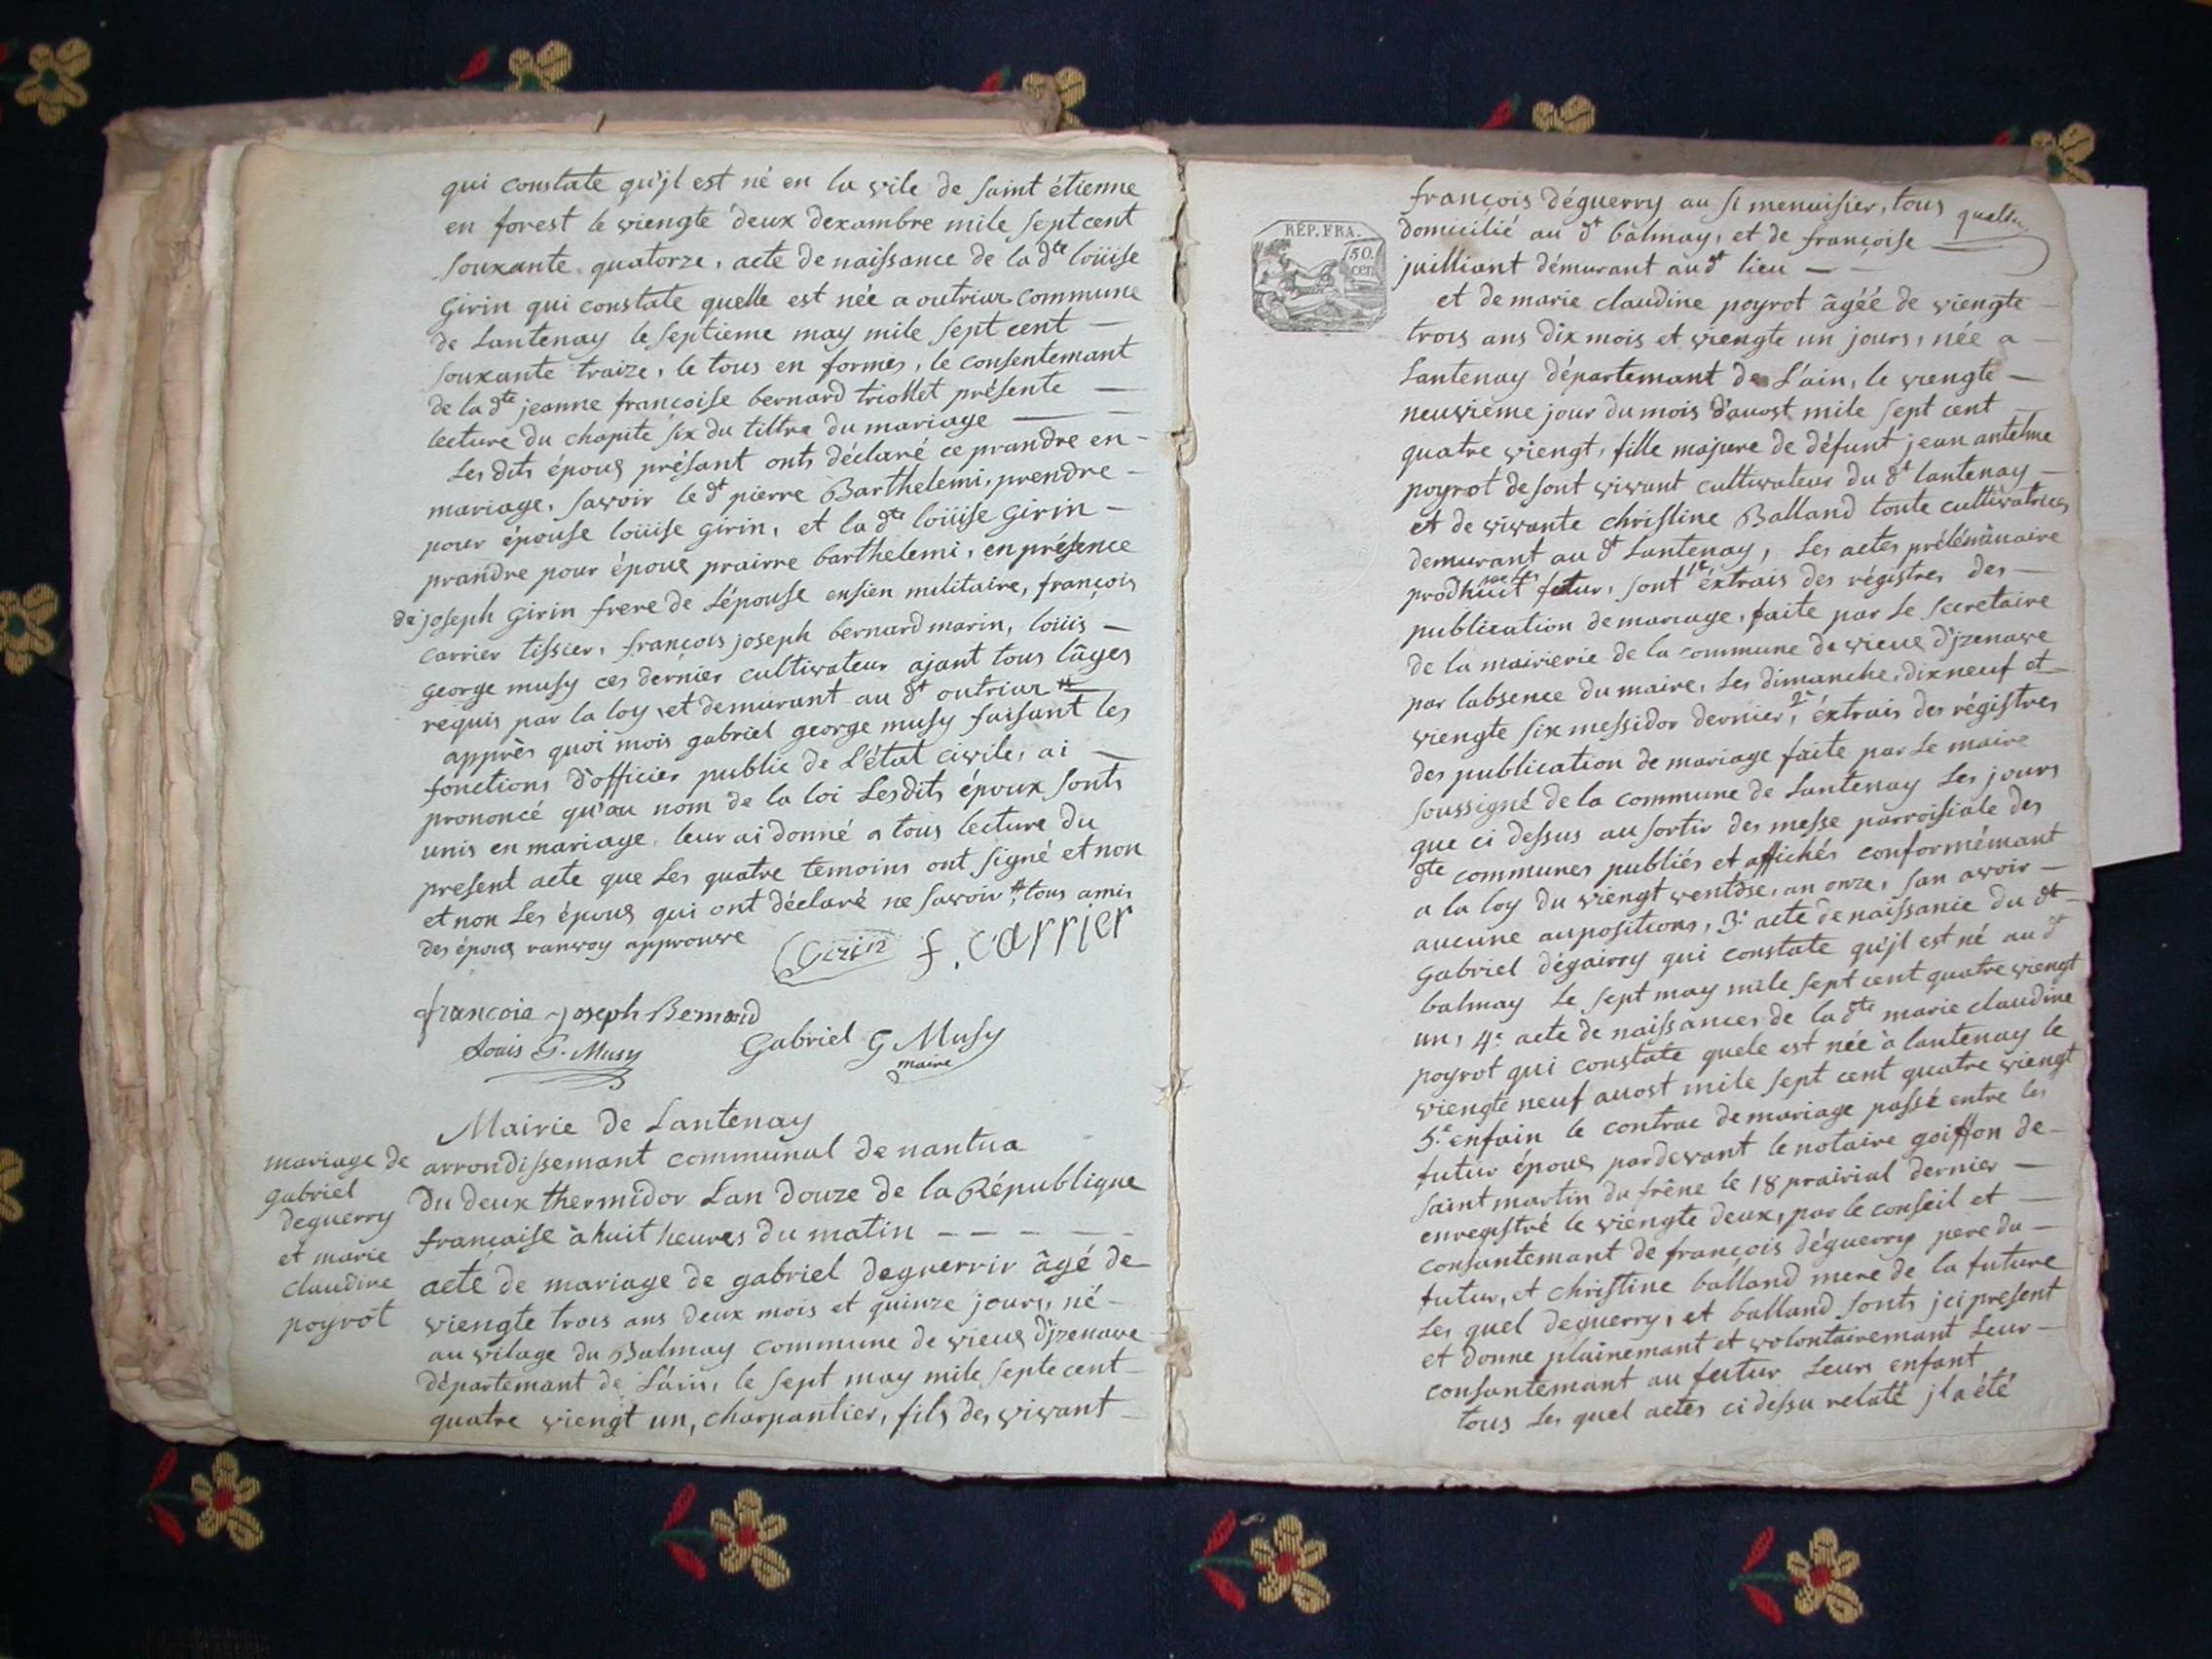 qui constate qu'jl est né en la vile de saint étienne
en forest le viengte deux dexambre mile sept cent
souxante quatorze, acte de naissance de la dte loüise
Girin qui constate quelle est née a outriax commune
de Lantenay le septieme may mile sept cent
souxante traize, le tous en formes, le consentemant
de la dte jeanne francoise bernard triollet présente
lecture du chapite six du tiltre du mariage
Les dits époux présant onts déclaré ce prandre en
mariage, savoir le dt pierre Barthelemi, prendre
pour épouse loüise girin, et la dte loüise Girin
prandre pour époux prairre barthelemi, en présence
de joseph Girin frere de Lépouse ensien militaire, françois
carrier tissier, françois joseph bernard marin, loüis
George musy ces dernier cultivateur ajant tous lâges
requis par la loy et demurant au dt outriax #
apprès quoi mois gabriel george musy faisant les
fonctions d'officier public de L'état civile, ai
prononcé qu'au nom de la loi Lesdits époux sonts
unis en mariage, leur ai donné a tous lecture du
present acte que Les quatre temoins ont signé et non
et non Les époux qui ont déclaré ne savoir # tous amis
des époux ranvoy approuve
Girin f. carrier
francois joseph Bernard
Louis G. Musy Gabriel G Musy
maire
Mairie de Lantenay
arrondissemant communal de nantua
mariage de
gabriel
deguerry
et marie
claudine
poyrot
du deux thermidor Lan douze de la République
francaise à huit heures du matin
acte de mariage de gabriel deguerrir âgé de
viengte trois ans deux mois et quinze jours, né
au vilage du Balmay commune de vieux d'jzenave
départemant de L'ain, le sept may mile septe cent
quatre viengt un, charpantier, fils des vivant
RÉP. FRA.
50.
cen
françois déguerry au si menuisier, tous
domicilié au dt balmay, et de françoise
juilliant démurant au dt lieu
et de marie claudine poyrot âgéé de viengte
trois ans dix mois et viengte un jours, née a
Lantenay départemant de L'ain, le viengte
neuvieme jour du mois d'auost mile sept cent
quatre viengt, fille majure de défunt jean antelme
poyrot de sont vivant cultivateur du dt lantenay
et de vivante christine Balland toute cultivatrices
demurant au dt Lantenay, Les actes préléminaire
prodhuit futur, sont 1e éxtrais des régistres des
publication de mariage, faite par Le secretaire
de la mairierie de la commune de vieux d'jzenave
par labsence du maire, Les dimanche, dix neuf et
viengte six messidor dernier, 2e éxtrais des régistres
des publication de mariage faite par Le maire
soussigné de la commune de Lantenay Les jours
que ci dessus au sortir des messe parroisiale des
dte communes publiés et affichés conformémant
a la loy du viengt ventôse, an onze, san avoir
aucune aupositions, 3e acte de naissance du dt
Gabriel dégairry qui constate qu'jl est né au dt
balmay Le sept may mile sept cent quatre viengt
un, 4e acte de naissances de la dte marie claudine
poyrot qui constate quele est née à lantenay le
viengte neuf auost mile sept cent quatre viengt
5e enfain le contrac de mariage passé entre les
futur époux pardevant le notaire goiffon de
saint martin du frêne le 18 prairial dernier
enregistré le viengte deux, par le conseil et
consantemant de françois déguerry pere du
futur, et christine balland mere de la future
Les quel deguerry, et balland sonts jci present
et donne plainemant et volontairemant Leur
consantemant au futur Leurs enfant
tous Les quel actes ci dessu relaté jl a été